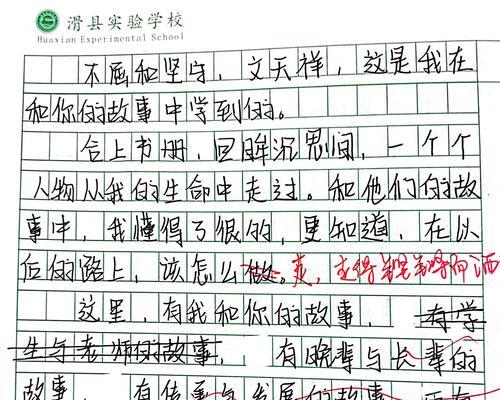 滑县实验学校
Huaxian Experimental School
不屈和坚守，文天祥，这是我在
和你的故事中学到的。
合上书册，回眸沉思间，一个个
人物从我的生命中走过。和他们的故
事中，我懂得了很的，更知道，在以
后的路上，该怎么做。
这里，有我和你的故事，有学
生与老师的故事，有晚辈与长辈的
故事，有传承与发展的故事